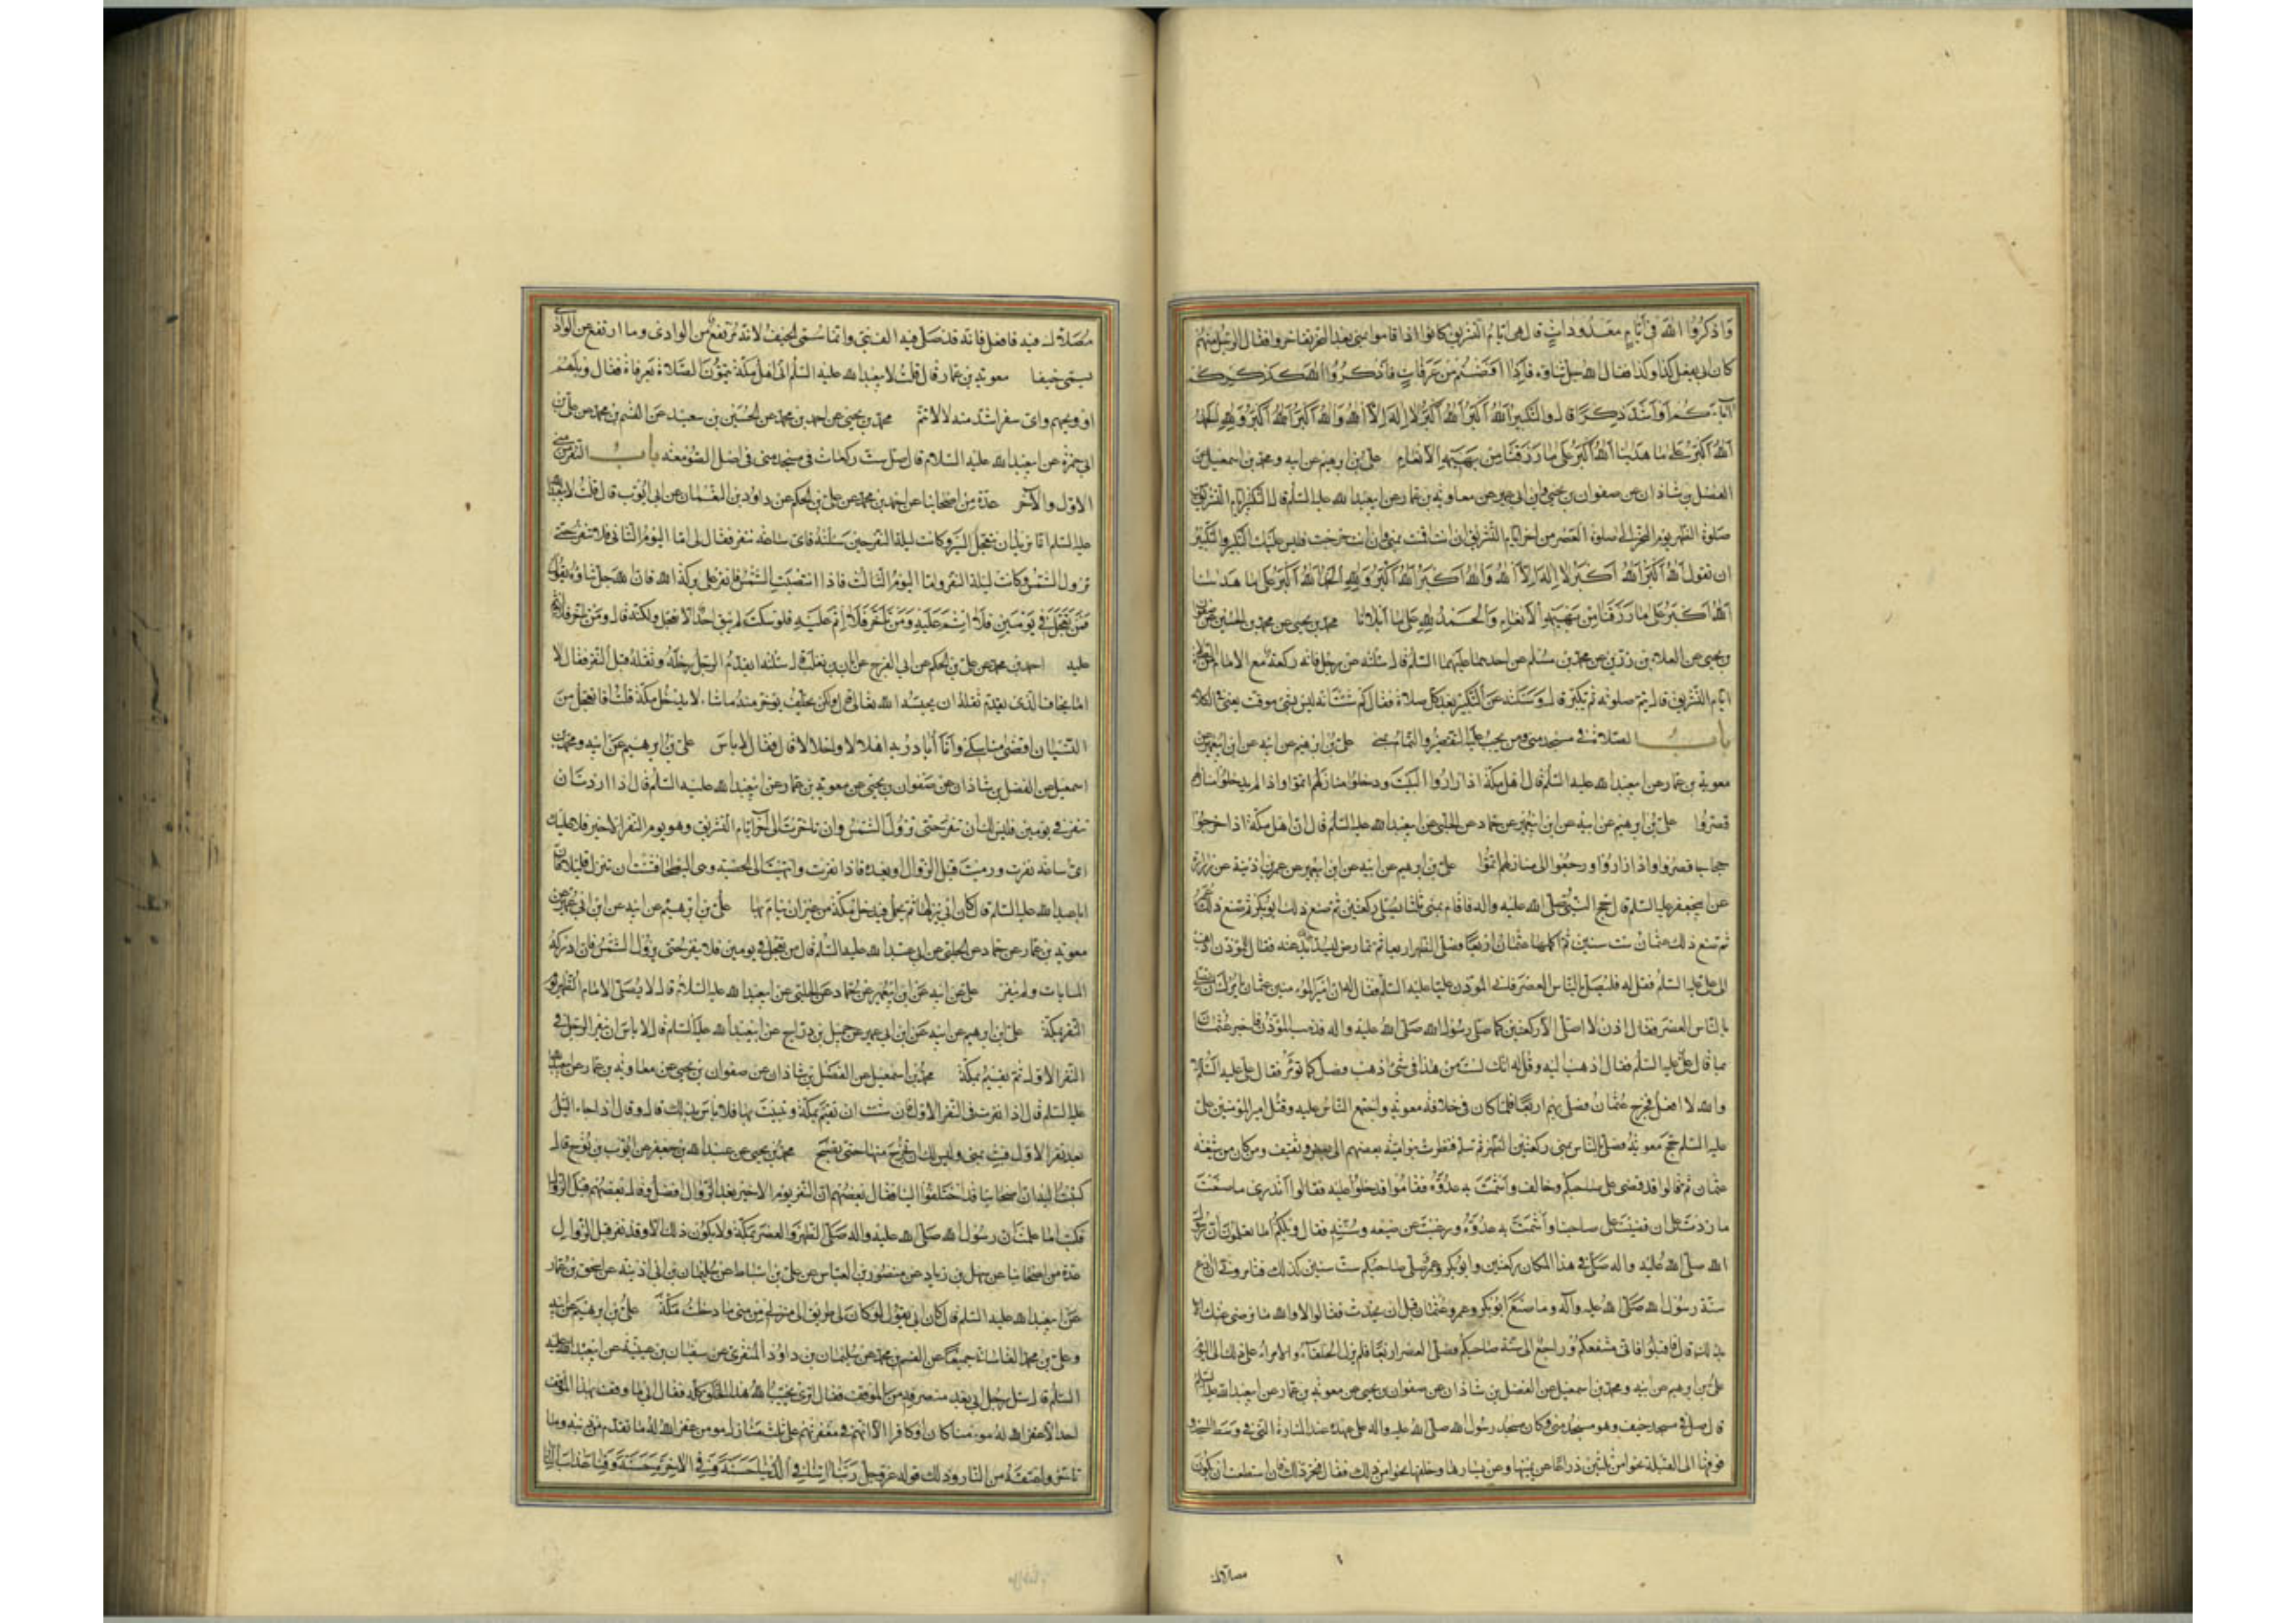 وَاذْكُرُوا اللهَ فِي أَيَّامٍ مَعْدُودَاتٍ قال هى ايام التشريق كانوا اذا اقاموا بمنى بعد النحر تفاخروا فقال الرجل منهم
كان ابى يفعل كذا وكذا فقال الله جل ثناؤه فَإِذَا أَفَضْتُمْ مِنْ عَرَفَاتٍ فَاذْكُرُوا اللهَ كَذِكْرِكُمْ
آبَاءَكُمْ أَوْ أَشَدَّ ذِكْرًا قال والتكبير اَللهُ أَكْبَرُ اَللهُ أَكْبَرُ لا إِلهَ إِلاَّ اللهُ وَاللهُ أَكْبَرُ اَللهُ أَكْبَرُ وَلِلّهِ الحَمْدُ
اَللهُ أَكْبَرُ عَلى مَا هَدَانَا اَللهُ أَكْبَرُ عَلى مَا رَزَقَنَا مِنْ بَهِيمَةِ الأَنْعَامِ على بن ابرهيم عن ابيه ومحمد بن اسمعيل عن
الفضل بن شاذان عن صفوان بن يحيى وابن ابى عمير عن معاوية بن عمار عن ابيعبدا لله عليه السلم قال التكبير ايام التشريق من
صلوة الظهر يوم النحر الى صلوة العصر من اخر ايام التشريق ان انت اقمت بمنى وان انت خرجت فليس عليك التكبير والتكبير
ان تقول اَللهُ أَكْبَرُ اَللهُ أَكْبَرُ لا إِلهَ إِلاَّ اللهُ وَاللهُ أَكْبَرُ اَللهُ أَكْبَرُ وَلِلّهِ الحَمْدُ اَللهُ أَكْبَرُ عَلى مَا هَدَانَا
اَللهُ أَكْبَرُ عَلى مَا رَزَقَنَا مِنْ بَهِيمَةِ الأَنْعَامِ وَالحَمْدُ لِلّهِ عَلى مَا أَبْلانَا محمد بن يحيى عن محمد بن الحسين عن صفوان
بن يحيى عن العلاء بن رزين عن محمد بن مسلم عن احدهما عليهما السلم قال سئلته عن رجل فاته ركعة مع الامام من الصلوة
ايام التشريق قال يتم صلوته ثم يكبر قال وسئلته عن التكبير بعد كل صلاة فقال كم شئت انه ليس بشئ موقت يعنى فى الكلام
باب الصلاة فى مسجد منى ومن يجب عليه التقصير والتمام بمنى على بن ابرهيم عن ابيه عن ابن ابيعمير عن
معوية بن عمار عن ابيعبدا لله عليه السلم قال اهل مكة اذا زاروا البيت ودخلوا منازلهم اتموا واذا لم يدخلوا منازلهم
قصروا على بن ابرهيم عن ابيه عن ابن ابيعمير عن حماد عن الحلبى عن ابيعبدا لله عليه السلم قال ان اهل مكة اذا خرجوا
حجاجا قصروا واذا زاروا ورجعوا الى منازلهم اتموا على بن ابرهيم عن ابيه عن ابن ابيعمير عن عمر بن اذينة عن زرارة
عن ابيجعفر عليه السلم قال حج النبى صلى الله عليه واله فاقام بمنى ثلثا يصلى ركعتين ثم صنع ذلك ابوبكر ثم صنع ذلك عمر
ثم صنع ذلك عثمان ست سنين ثم اكملها عثمان اربعا فصلى الظهر اربعا ثم تمارض ليشد بذلك بدعته فقال للمؤذن اذهب
الى على عليه السلم فقل له فليصل بالناس العصر فاتى المؤذن عليا عليه السلم فقال له ان امير المؤمنين عثمان يامرك ان تصلى
بالناس العصر فقال اذن لا اصلى الا ركعتين كما صلى رسول الله صلى الله عليه واله فذهب المؤذن فاخبر عثمان
بما قال على عليه السلم فقال اذهب اليه وقل له انك لست من هذا فى شئ اذهب فصل كما تؤمر فقال على عليه السلم لا
والله لا افعل فخرج عثمان فصلى بهم اربعا فلما كان فى خلافة معوية واجتمع الناس عليه وقتل امير المؤمنين على
عليه السلم حج معوية فصلى بالناس بمنى ركعتين الظهر ثم سلم فنظرت بنو امية بعضهم الى بعض وثقيف ومن كان من شيعة
عثمان ثم قالوا قد قضى على صاحبكم وخالف واشمت به عدوه فقاموا فدخلوا عليه فقالوا اتدرى ما صنعت
ما زدت على ان قضيت على صاحبنا واشمت به عدوه ورغبت عن صنيعه وسنته فقال ويلكم اما تعلمون ان رسول
الله صلى الله عليه واله صلى فى هذا المكان ركعتين وابوبكر وعمر وصلى صاحبكم ست سنين كذلك فتامرونى ان ادع
سنة رسول الله صلى الله عليه وآله وما صنع ابوبكر وعمر وعثمان قبل ان يحدث فقالوا لا والله ما نرضى عنك الا
بذلك قال فاقبلوا فانى مشفعكم وراجع الى سنة صاحبكم فصلى العصر اربعا فلم يزل الخلفاء والامراء على ذلك الى اليوم
على بن ابرهيم عن ابيه ومحمد بن اسمعيل عن الفضل بن شاذان عن صفوان بن يحيى عن معوية بن عمار عن ابيعبدا لله عليه السلم
قال صل فى مسجد خيف وهو مسجد منى وكان مسجد رسول الله صلى الله عليه واله على عهده عند المنارة التى فى وسط المسجد و
فوقها الى القبلة نحوا من ثلثين ذراعا وعن يمينها وعن يسارها وخلفها نحوا من ذلك فقال فتحر ذلك فان استطعت ان يكون
مصلاك
مصلاك فيه فافعل فانه قد صلى فيه الف نبى وانما سمى الخيف لانه مرتفع من الوادى وما ارتفع عن الوادى
يسمى خيفا معوية بن عمار قال قلت لابيعبدا لله عليه السلم ان اهل مكة يتمون الصلاة بعرفاة فقال ويلهم
او ويحهم واى سفر اشد منه لا لا تتم محمد بن يحيى عن احمد بن محمد عن الحسين بن سعيد عن القسم بن محمد عن على بن
ابى حمزة عن ابيعبدا لله عليه السلام قال صل ست ركعات فى مسجد منى فى اصل الصومعة باب النفر من منى
الاول والآخر عدة من اصحابنا عن احمد بن محمد عن على بن الحكم عن داود بن النعمان عن ابى ايوب قال قلت لابيعبدالله
عليه السلم انا نريد ان نتعجل السير وكانت ليلة النفر حين سئلته فاى ساعة ننفر فقال لى اما اليوم الثانى فلا تنفر حتى
تزول الشمس وكانت ليلة النفر واما اليوم الثالث فاذا انتصبت الشمس فانفر على بركة الله فان الله جل ثناؤه يقول
فَمَنْ تَعَجَّلَ فِي يَوْمَيْنِ فَلا إِثْمَ عَلَيْهِ وَمَنْ تَأَخَّرَ فَلا إِثْمَ عَلَيْهِ فلو سكت لم يبق احد الا تعجل ولكنه قال ومن تاخر فلا اثم
عليه احمد بن محمد عن على بن الحكم عن ابى الفرج عن ابان بن تغلب قال سئلته ايقدم الرجل رحله وثقله قبل النفر فقال لا
اما يخاف الذى يقدم ثقله ان يحبسه الله تعالى قال ولكن يخلف يؤخر منه ما شاء لا يدخل مكة قلت افاتعجل من
النسيان اقضى مناسكى وانا ابادر به اهلالا واحلالا قال فقال لا باس على بن ابرهيم عن ابيه ومحمد بن
اسمعيل عن الفضل بن شاذان عن صفوان بن يحيى عن معوية بن عمار عن ابيعبدا لله عليه السلم قال اذا اردت ان
تنفر فى يومين فليس لك ان تنفر حتى تزول الشمس وان تاخرت الى آخر ايام التشريق وهو يوم النفر الاخير فلا عليك
اى ساعة نفرت ورميت قبل الزوال او بعده فاذا نفرت وانتهيت الى الحصبة وهى البطحا فشئت ان تنزل قليلا فان
اباعبدا لله عليه السلم قال كان ابى ينزلها ثم يحمل فيدخل مكة من غير ان ينام بها على بن ابرهيم عن ابيه عن ابن ابى عمير عن
معوية بن عمار عن حماد عن الحلبى عن ابى عبدا لله عليه السلم قال من تعجل فى يومين فلا ينفر حتى تزول الشمس فان ادركه
المسا بات ولم ينفر على عن ابيه عن ابن ابيعمير عن حماد عن الحلبى عن ابيعبدا لله عليه السلام قال لا يصلى الامام الظهر يوم
النفر بمكة على بن ابرهيم عن ابيه عن ابن ابى عمير عن جميل بن دراج عن ابيعبدا لله عليه السلم قال لا باس ان ينفر الرجل فى
النفر الاول ثم يقيم بمكة محمد بن اسمعيل عن الفضل بن شاذان عن صفوان بن يحيى عن معاوية بن عمار عن ابيعبدالله
عليه السلم قال اذا نفرت فى النفر الاول فان شئت ان تقيم بمكة وتبيت بها فلا باس بذلك قال وقال اذا جاء الليل
بعد نفر الاول فبت بمنى وليس لك ان تخرج منها حتى تصبح محمد بن يحيى عن عبدا لله بن جعفر عن ايوب بن نوح قال
كتبت اليه ان اصحابنا قد اختلفوا علينا فقال بعضهم ان النفر يوم الاخير بعد الزوال افضل وقال بعضهم قبل الزوال
فكتب اما علمت ان رسول الله صلى الله عليه واله صلى الظهر والعصر بمكة ولا يكون ذلك الا وقد نفر قبل الزوال
عدة من اصحابنا عن سهل بن زياد عن منصور بن العباس عن على بن اسباط عن سليمان بن ابى اذينة عن اسحق بن عمار
عن ابيعبدا لله عليه السلم قال كان ابى يقول لو كان لى طريق الى منزلى من منى ما دخلت مكة على بن ابرهيم عن ابيه
وعلى بن محمد القاسانى جميعا عن القسم بن محمد عن سليمان بن داود المنقرى عن سفيان بن عيينة عن ابيعبدالله عليه
السلم قال سئل رجل ابى بعد منصرفه من الموقف فقال اترى يخيب الله هذا الخلق كله فقال ابى ما وقف بهذا الموقف
احد الا غفر الله له مومنا كان او كافرا الا انهم فى مغفرتهم على ثلث منازل مومن غفر الله له ما تقدم من ذنبه وما
تاخر واعتقه من النار وذلك قوله عز وجل رَبَّنَا آتِنَا فِي الدُّنْيَا حَسَنَةً وَفِي الآخِرَةِ حَسَنَةً وَقِنَا عَذَابَ النَّارِ